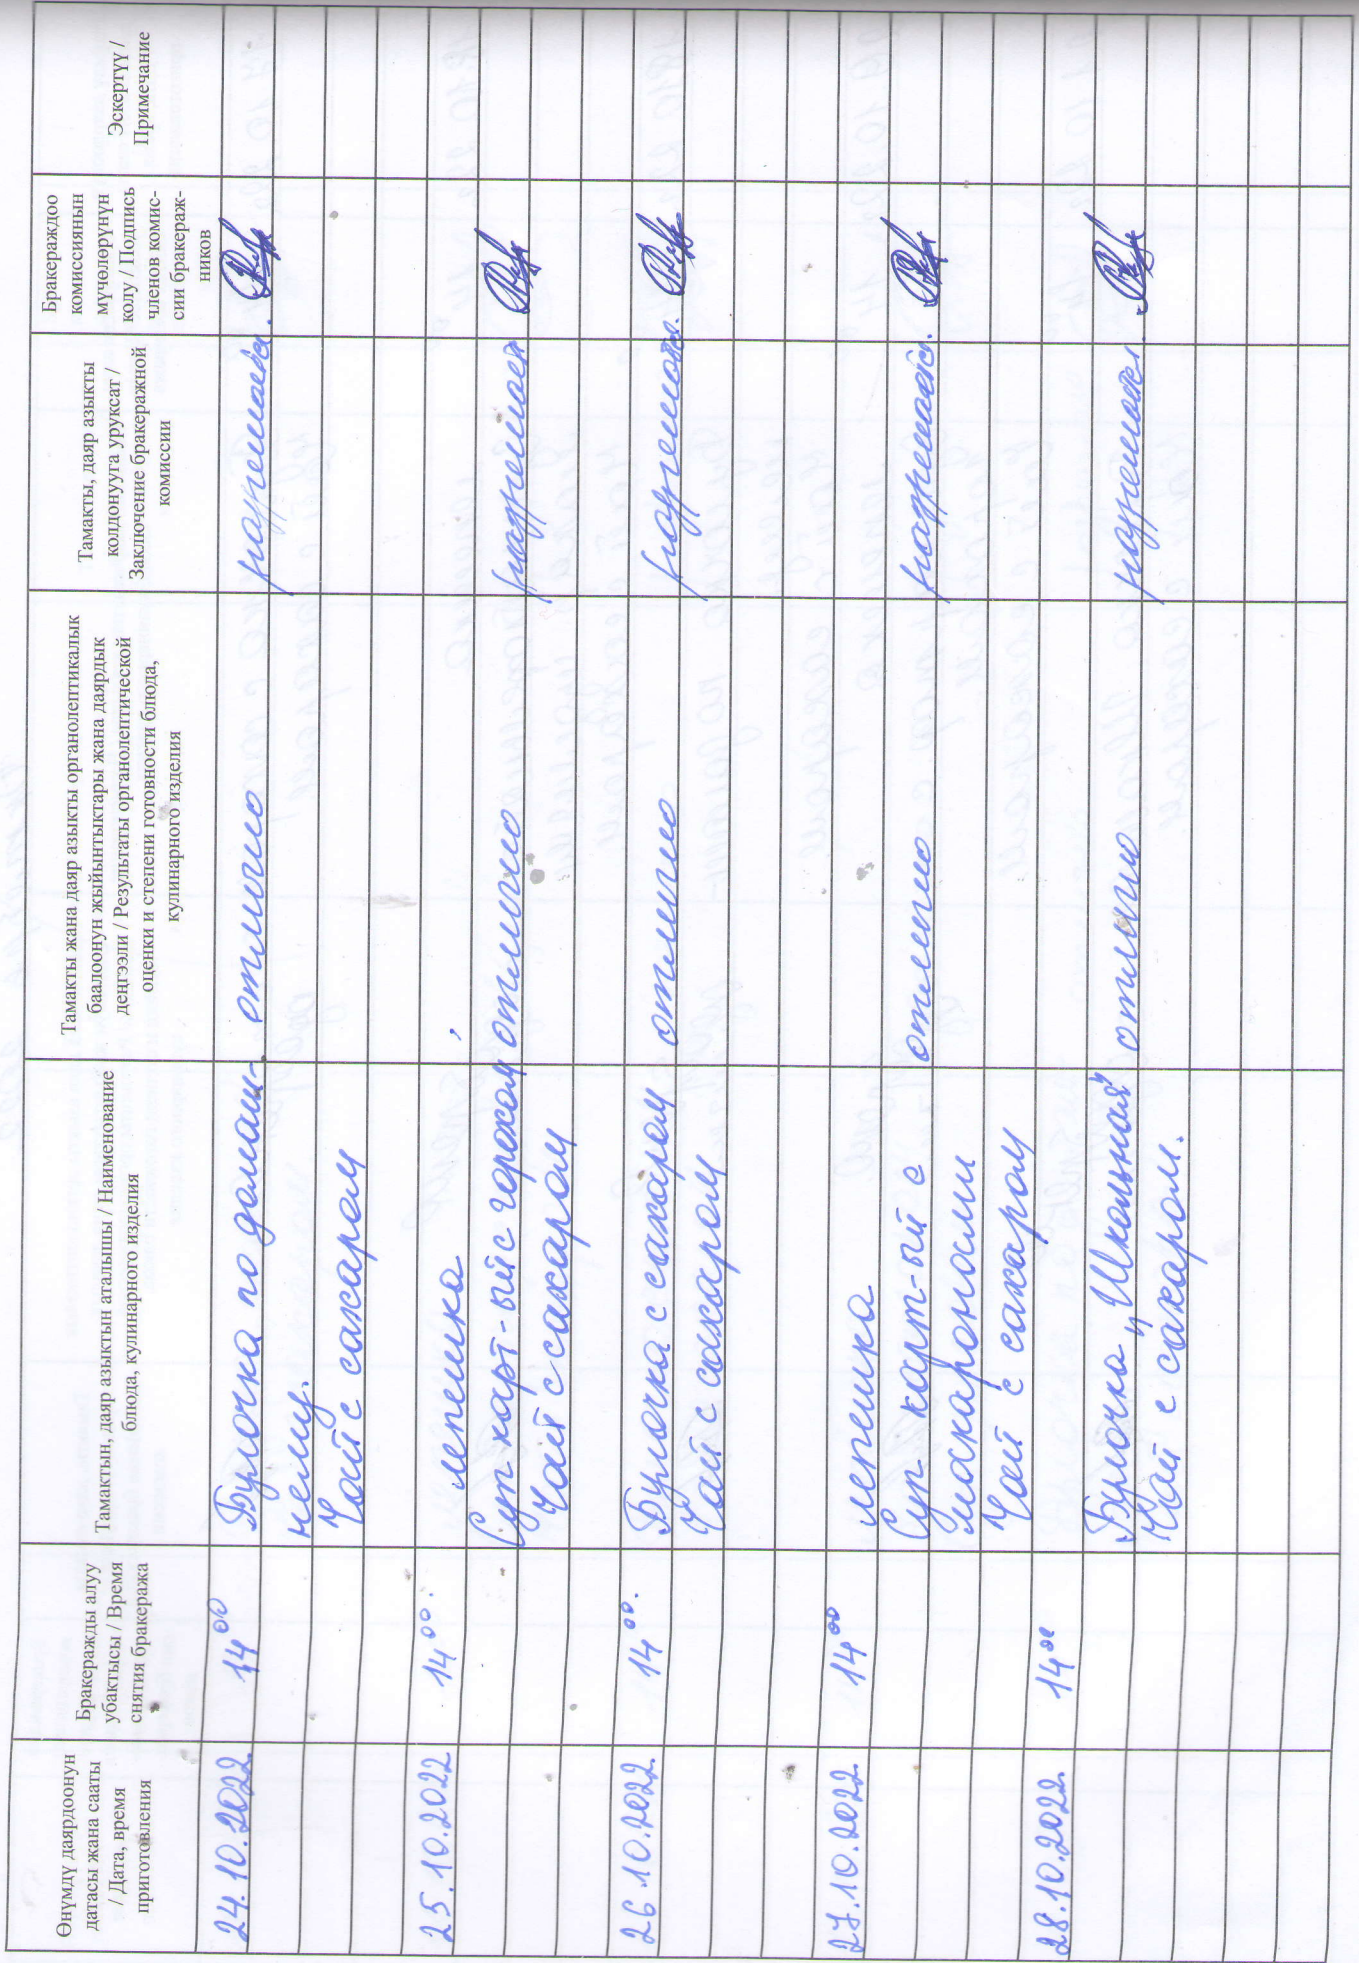 Өнүмдү даярдоонун
датасы жана сааты
/ Дата, время
приготовления
Бракеражды алуу
убактысы / Время
снятия бракеража
Тамактын, даяр азыктын аталышы / Наименование
блюда, кулинарного изделия
Тамакты жана даяр азыкты органолептикалык
баалоонун жыйынтыктары жана даярдык
деңгээли / Результаты органолептической
оценки и степени готовности блюда,
кулинарного изделия
Тамакты, даяр азыкты
колдонууга уруксат /
Заключение бракеражной
комиссии
Бракераждоо
комиссиянын
мүчөлөрүнүн
колу / Подпись
членов комис-
сии бракераж-
ников
Эскертүү /
Примечание
24.10.2022 14 00 Булочка по домаш- отлично разрешается.
нему.
Чай с сахаром
25.10.2022 14 00. лепешка
Суп карт-ый с горохом отлично разрешается
Чай с сахаром
26.10.2022 14 00. Булочка с сахаром отлично разрешается.
Чай с сахаром
27.10.2022 14 00 лепешка
Суп карт-ый с отлично разрешается.
макаронами
Чай с сахаром
28.10.2022. 14 00
Булочка „Школьная" отлично разрешается.
Чай с сахаром.